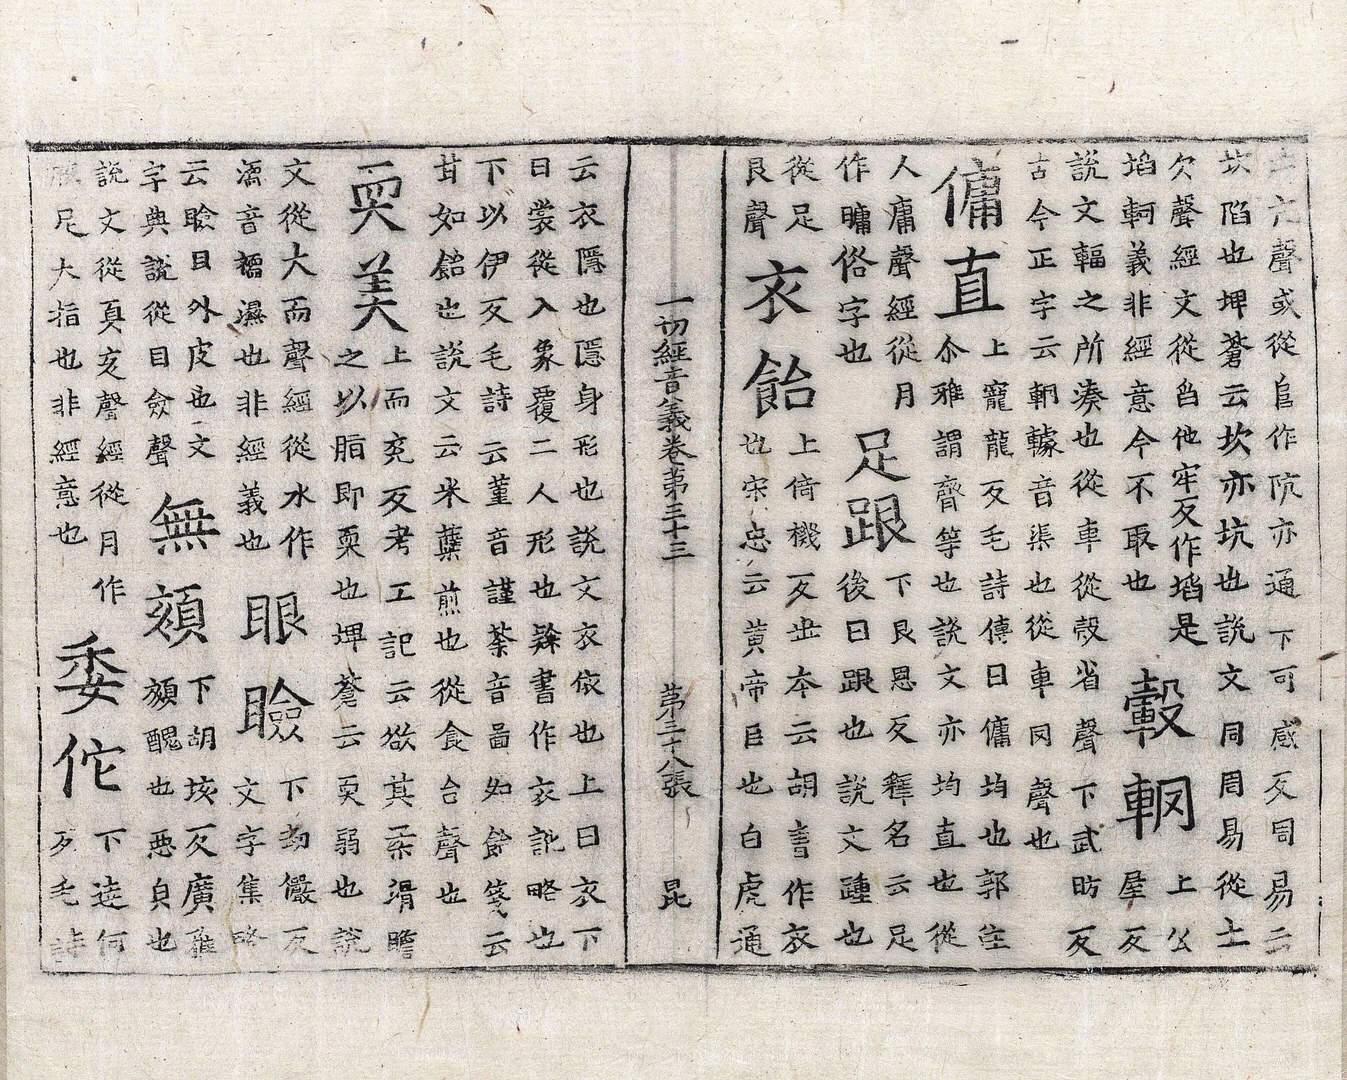 土亢聲或從𨸏作阬亦通下可感反周易云
坎陷也埤蒼云坎亦坑也說文同周易從土
欠聲經文從臽他牢反作塪是
塪軻義非經意今不取也
轂輞
上公
屋反
說文輻之所湊也從車從殼省聲下武昉反
古今正字云輞轅音渠也從車罔聲也
傭直
上寵龍反毛詩傳曰傭均也郭注
尒雅謂齊等也說文亦均直也從
人庸聲經從月
作𦟛俗字也
足跟
下艮恩反釋名云足
後曰跟也說文踵也
從足
艮聲
衣飴
上倚機反丗本云胡曹作衣
也宋忠云黃帝臣也白虎通
一切經音義卷第三十三
第三十八張
昆
云衣隱也隱身形也說文衣依也上曰衣下
曰裳從入象覆二人形也隸書作衣訛略也
下以伊反毛詩云堇音謹荼音啚如飴箋云
甘如飴也說文云米櫱煎也從食台聲也
耎美
上而兖反考工記云欲其柔滑膽
之以脂即耎也埤蒼云耎弱也說
文從大而聲經從水作
濡音襦濕也非經義也
眼瞼
下劫儼反
文字集略
云瞼目外皮也文
字典說從目僉聲
無頦
下胡垓反廣雅
頦醜也惡皃也
說文從頁亥聲經從月作
胲足大指也非經意也
委佗
下達何
反毛詩